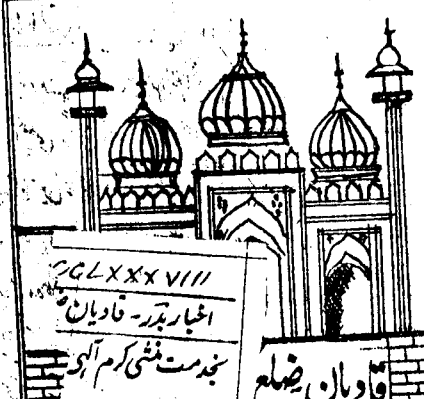 LXXXVIII
اخبار بدر - قادیان
بخدمت منشی کرم الٰہی
قادیان ضلع